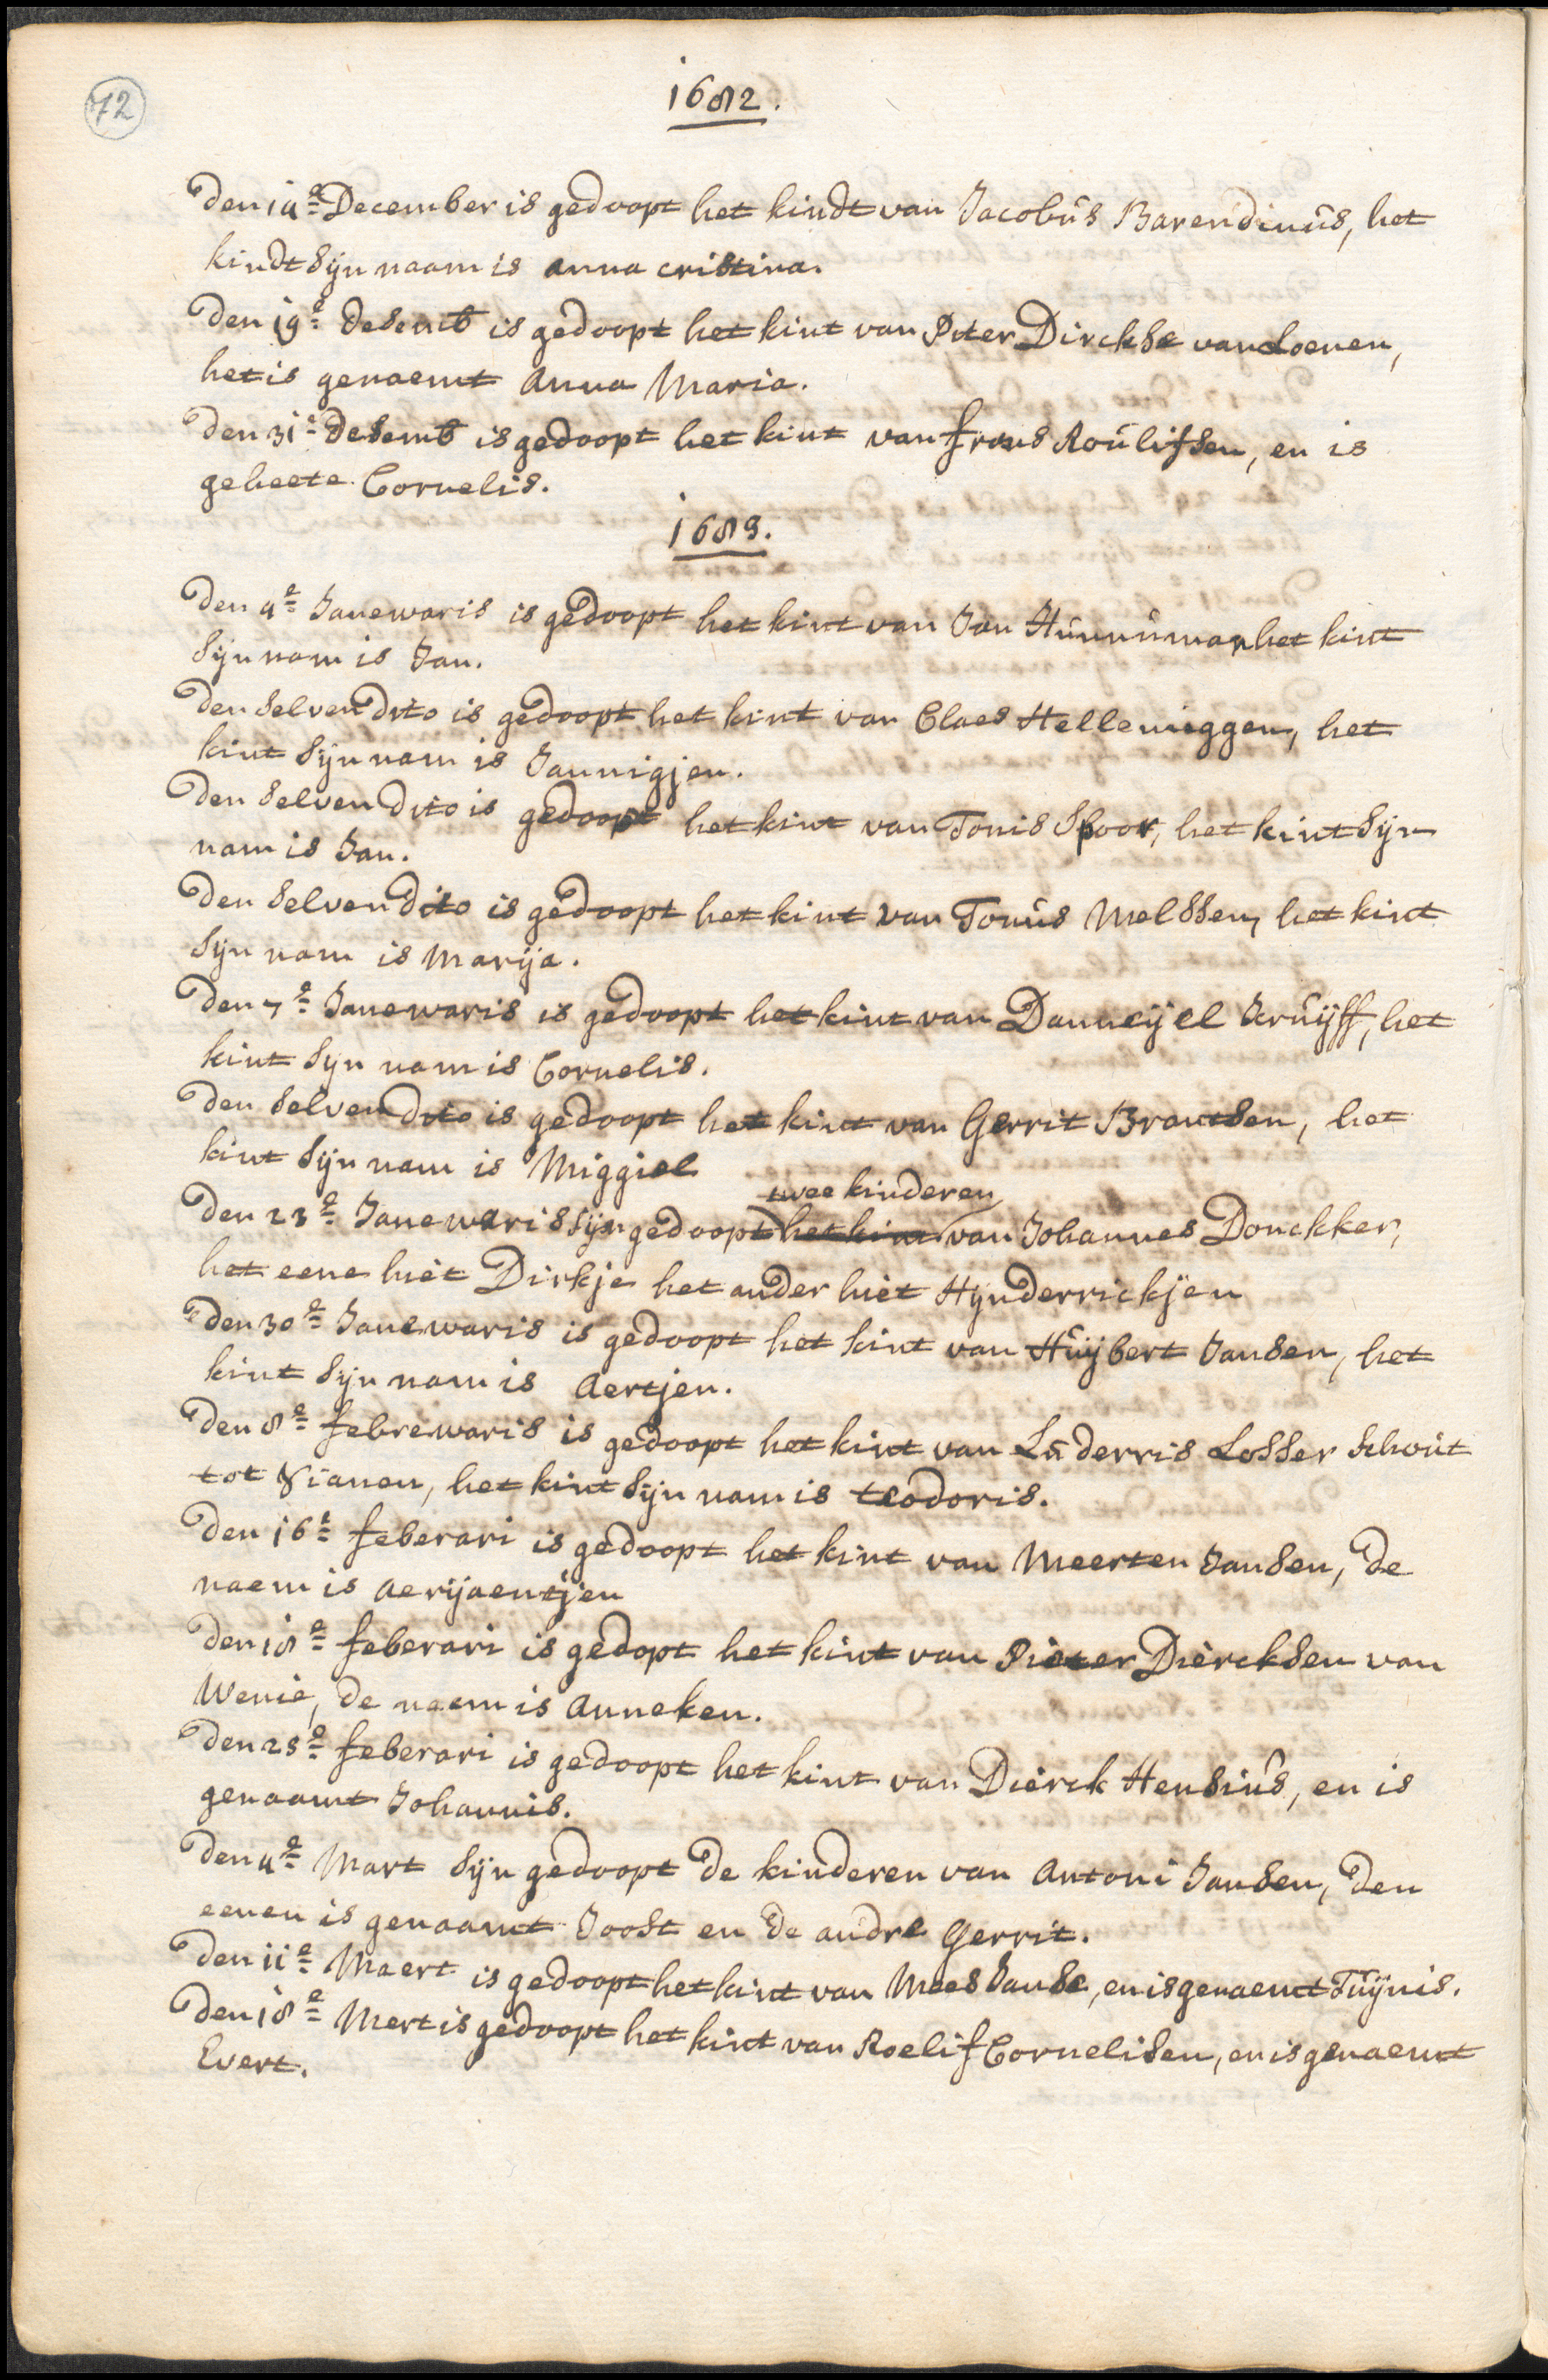 72
1682.
Den 14e December is gedoopt het kindt van Jacobus Barendinus, het
kindt sijn naam is anna cristina.
Den 19e desemb is gedoopt het kint van Piter Dirckse van Loenen,
het is genaemt Anna Maria.
Den 31e desemb is gedoopt het kint van frans Roulifsen, en is
geheete Cornelis.
1683.
Den 4e Janewaris is gedoopt het kint van Jan Hunnuman het kint
sijn nam is Jan.
Den selven dito is gedoopt het kint van Claes Helleniggen, het
kint sijn nam is Jannigjen.
Den selven dito is gedoopt het kint van Tonis Spoor, het kint sijn
nam is Jan.
Den selven dito is gedoopt het kint van Tonus Melssen, het kint
sijn nam is Marija.
Den 7e Janewaris is gedoopt het kint van Danneijel Kruijff, het
kint sijn nam is Cornelis.
Den selven dito is gedoopt het kint van Gerrit Brantsen, het
kint sijn nam is Miggiel
twee kinderen
Den 23e Janewaris sijn gedoopt het kint van Johannes Donckker,
het eene hiet Dirkje het ander hiet Hijnderrickjen
Den 30e Janewaris is gedoopt het kint van Huijbert Jansen, het
kint sijn nam is Aertjen.
Den 8e febrewaris is gedoopt het kint van Luderris Losser schout
tot Vianen, het kint sijn nam is teodoris.
Den 16e feberari is gedoopt het kint van Meerten Jansen, de
naem is aerijaentjen
Den 18e feberari is gedopt het kint van Pieter Diercksen van
Wenie, de naem is Anneken.
Den 25e feberari is gedoopt het kint van Dierck Hensius, en is
genaamt Johannis.
Den 4e Mart sijn gedoopt de kinderen van Antoni Jansen, den
eenen is genaamt Joost en de andre Gerrit.
Den 11e Maert is gedoopt het kint van Mees Janse, en is genaemt Tuijnis.
Den 18e Mert is gedoopt het kint van Roelif Cornelisen, en is genaemt
Evert.